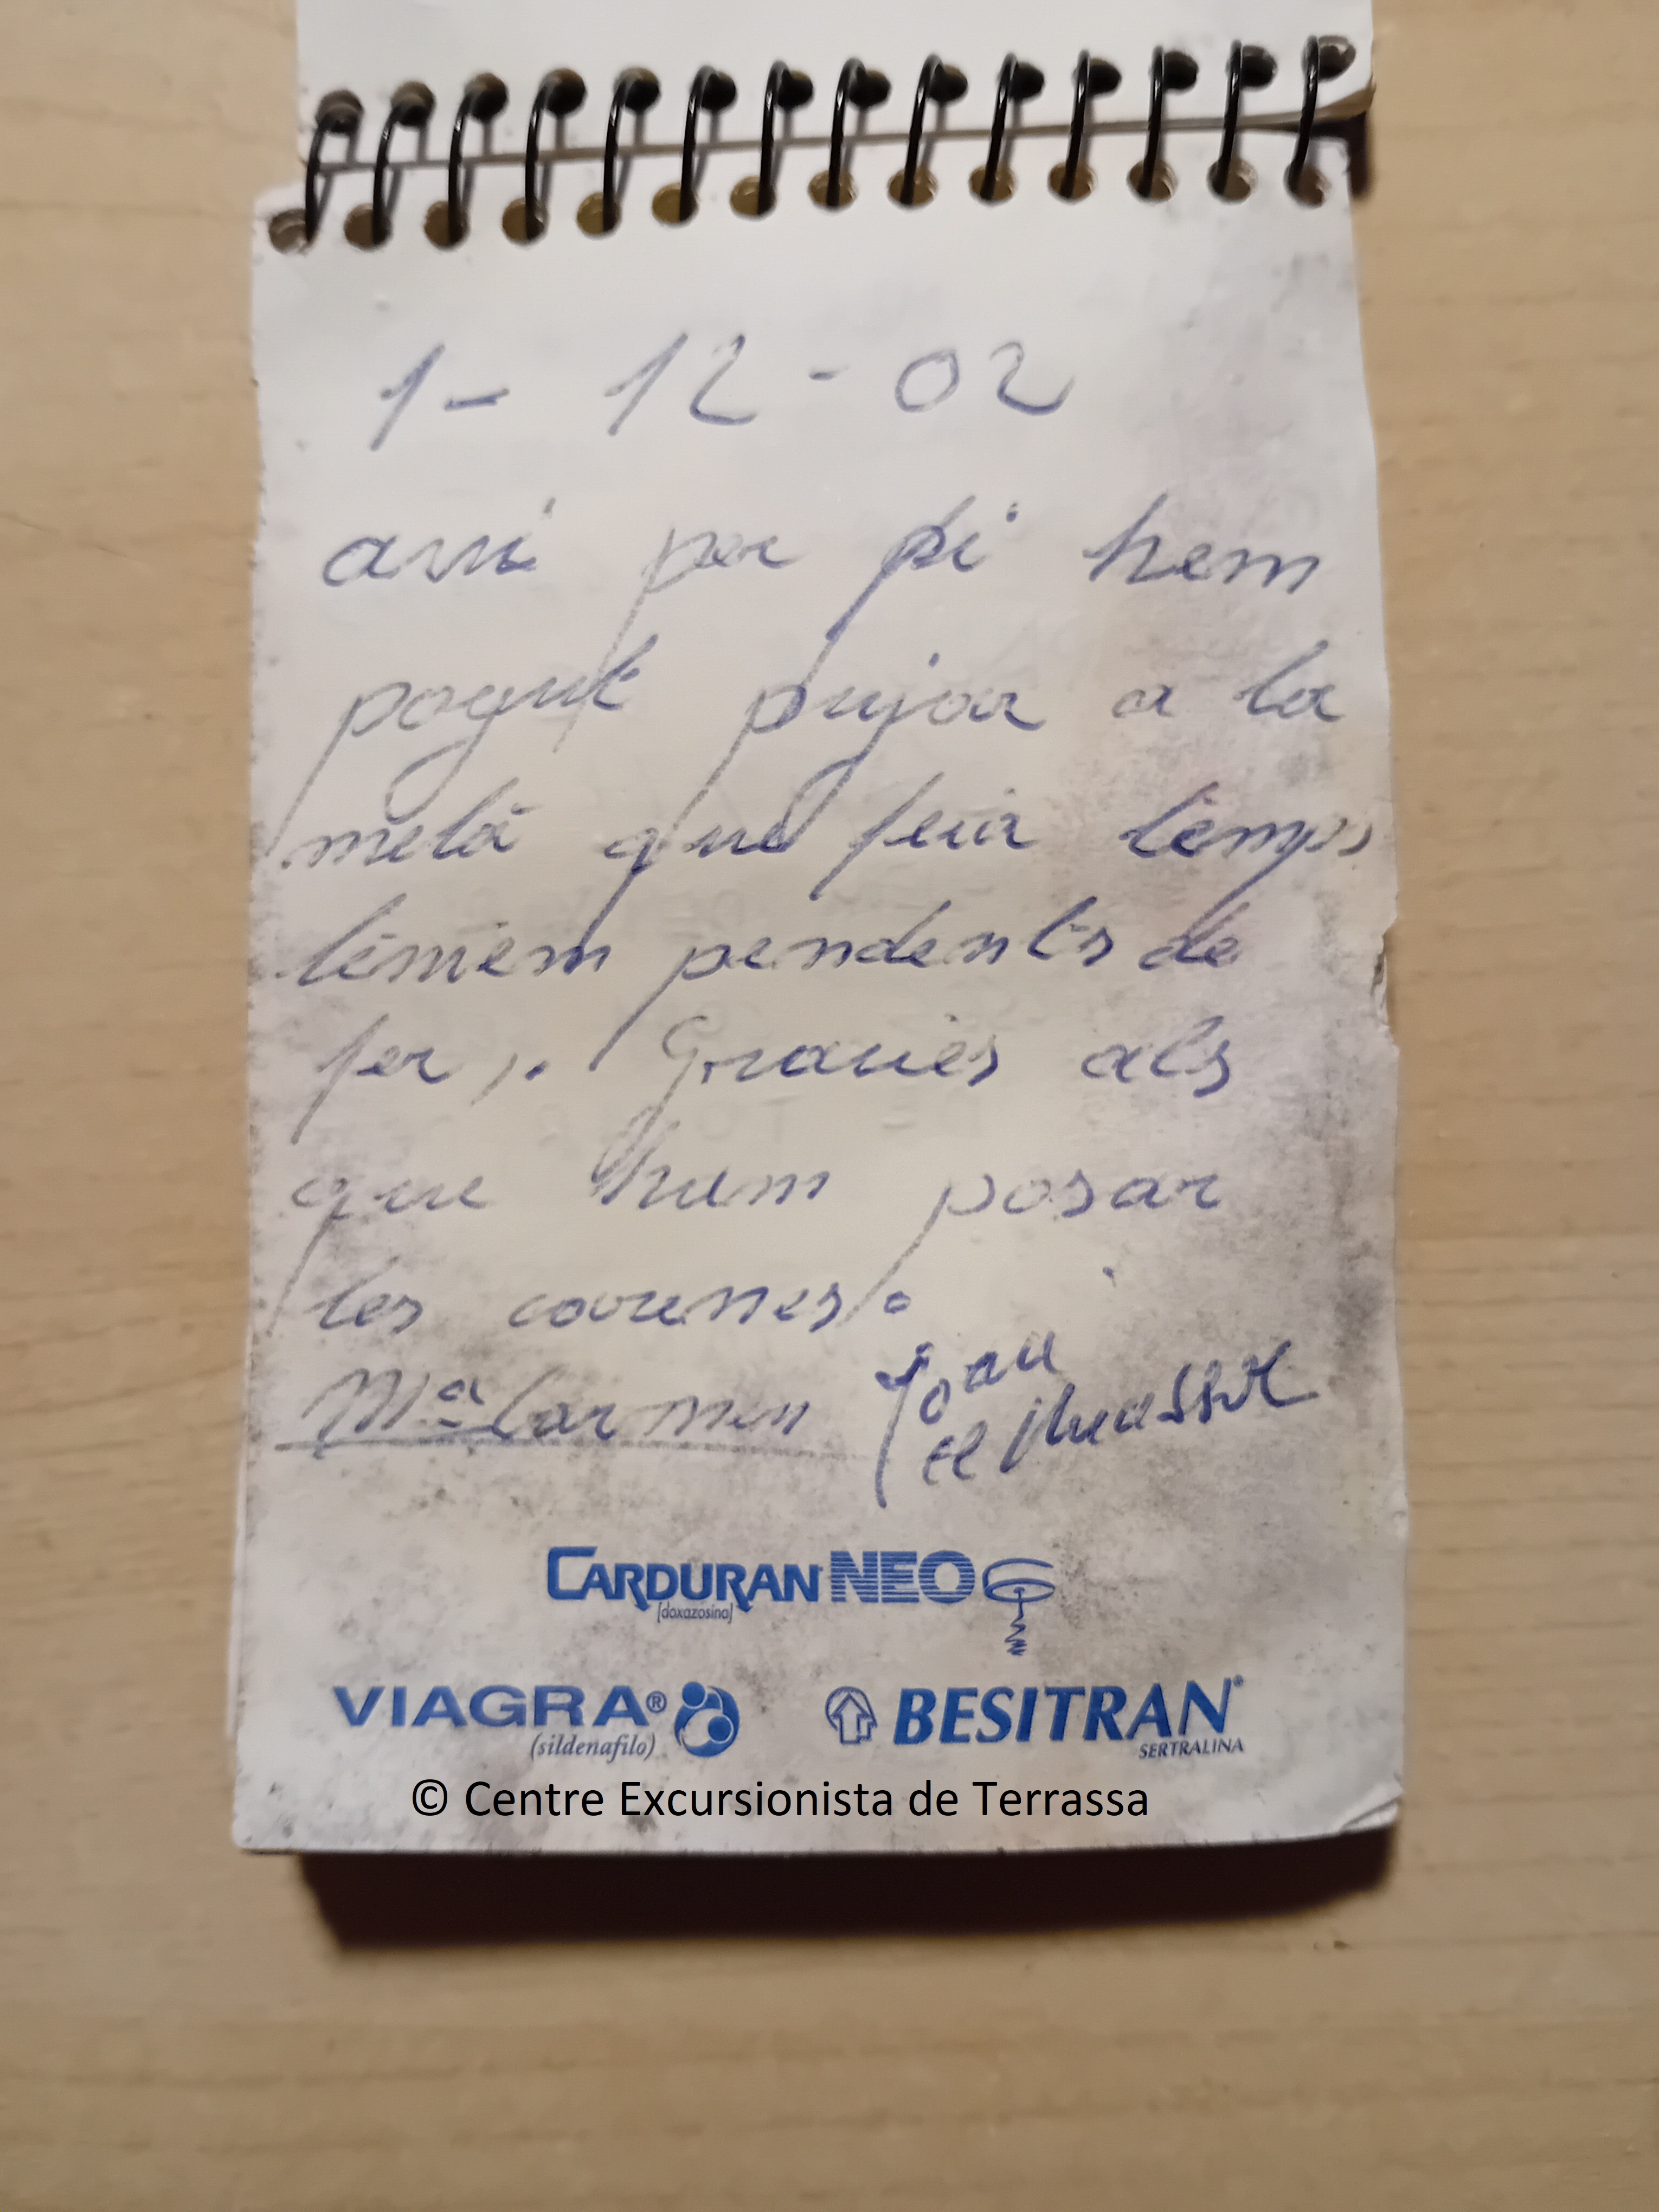 1-12-02
avui per fi hem
pogut pujar a la
meta que feia temps
teniem pendents de
fer,. Gracies als
que ham posar
les cavenes.
Mª Carmen Joan
el
CARDURAN NEO
[doxazosina]
VIAGRA® BESITRAN®
(sildenafilo) SERTRALINA
© Centre Excursionista de Terrassa